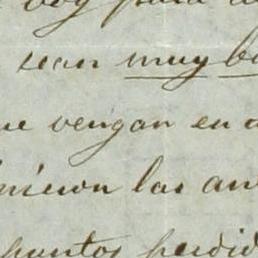 voy para
sean muy b
ue vengan en a
inieron las an
puntos perdid